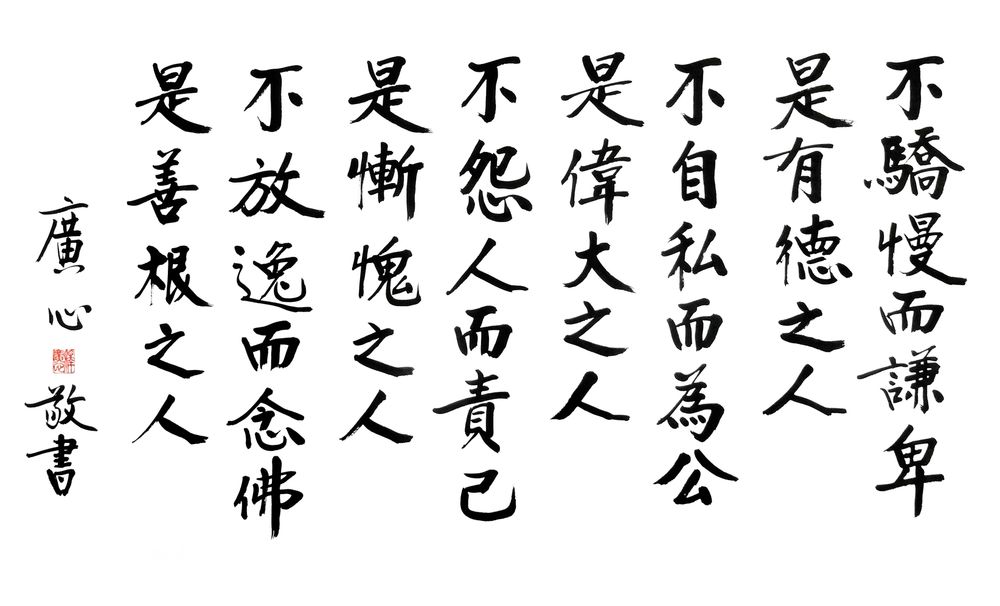 不驕慢而謙卑
是有德之人
不自私而為公
是偉大之人
不怨人而責己
是慚愧之人
不放逸而念佛
是善根之人
廣心敬書